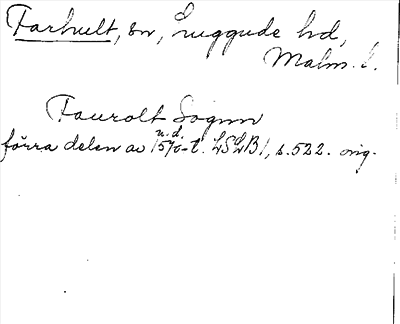 Farhult, sn, Luggude hd,
Malm. l.
Faurolt Sognn
n. d.
förra delen av 1570-t. LSLB1, s. 522. orig.